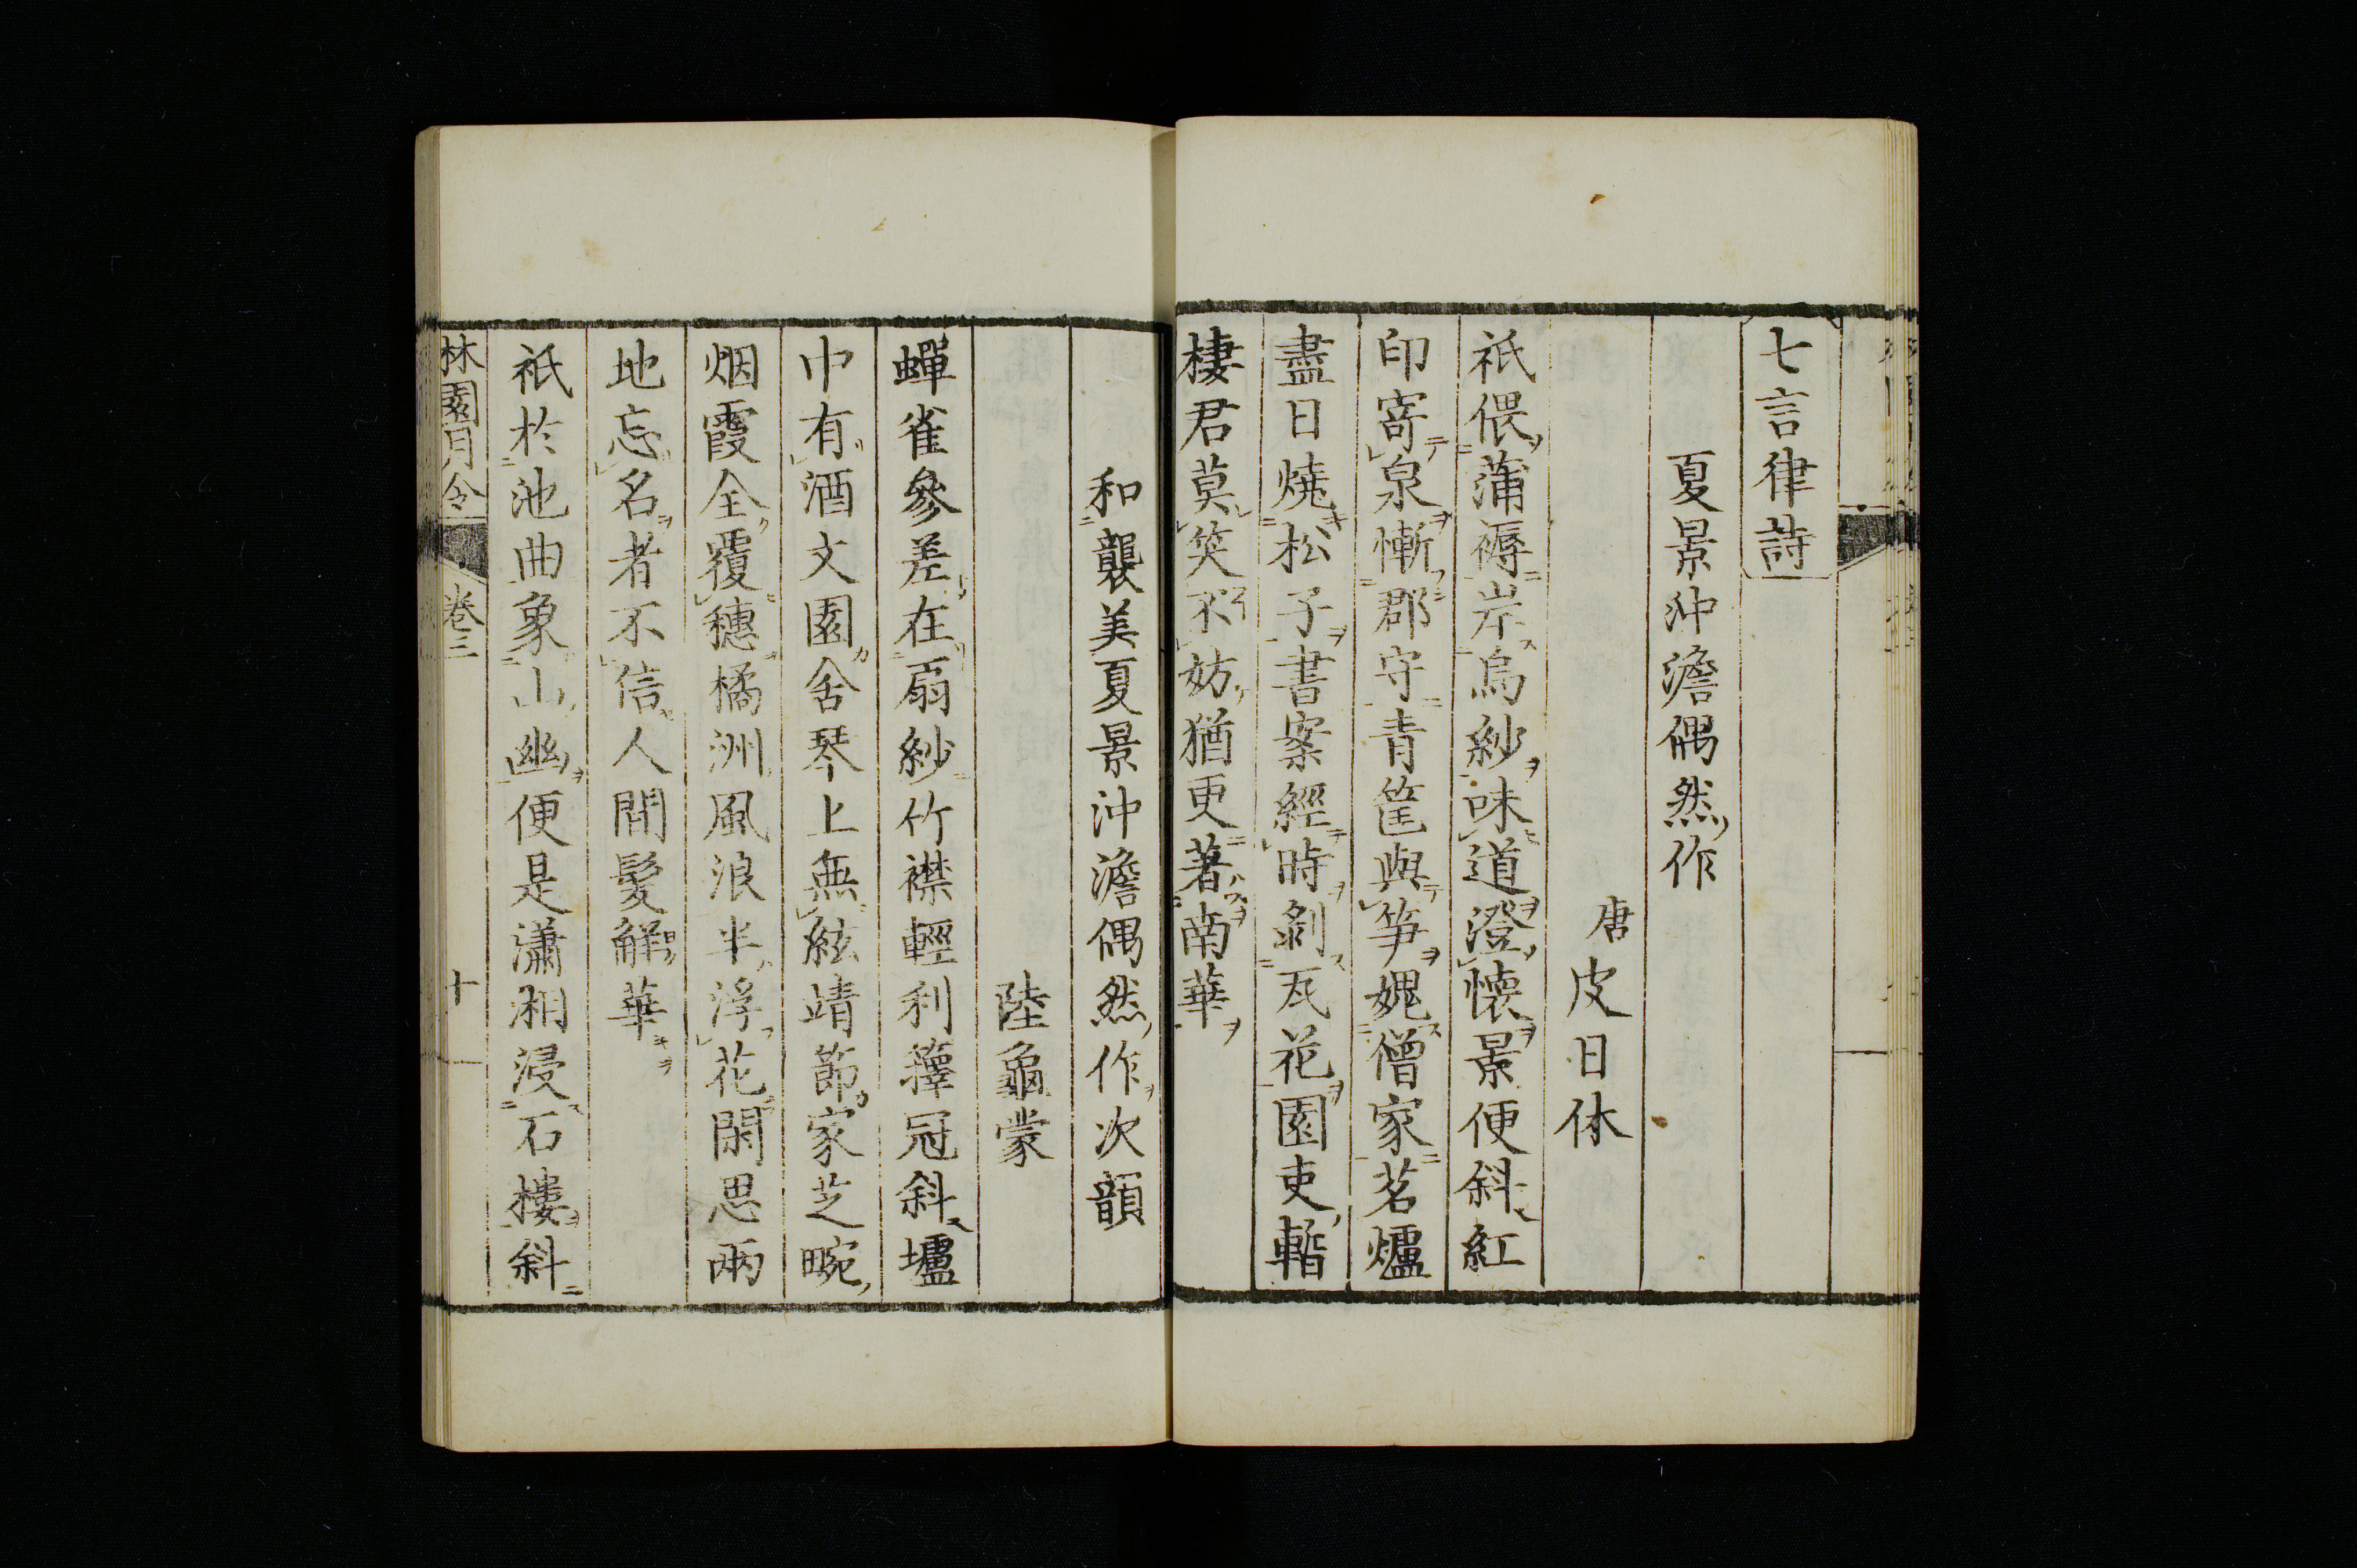 七言律詩
夏景沖澹偶然作
唐皮日休
祇偎蒲褥岸烏紗味道澄懷景便斜紅
印寄泉慚郡守青筐與笋媿僧家茗爐
盡日燒松子書案經時剝瓦花園吏暫
棲君莫笑不妨猶更著南華
和襲美夏景沖澹偶然作次韻
陸龜蒙
蟬雀參差在扇紗竹襟輕利籜冠斜壚
中有酒文園舍琴上無絃靖節家芝畹
烟霞全覆穗橘洲風浪半浮花閑思兩
地忘名者不信人間髮解華
祇於池曲象山幽便是瀟湘浸石樓斜
林園月令
卷三
十